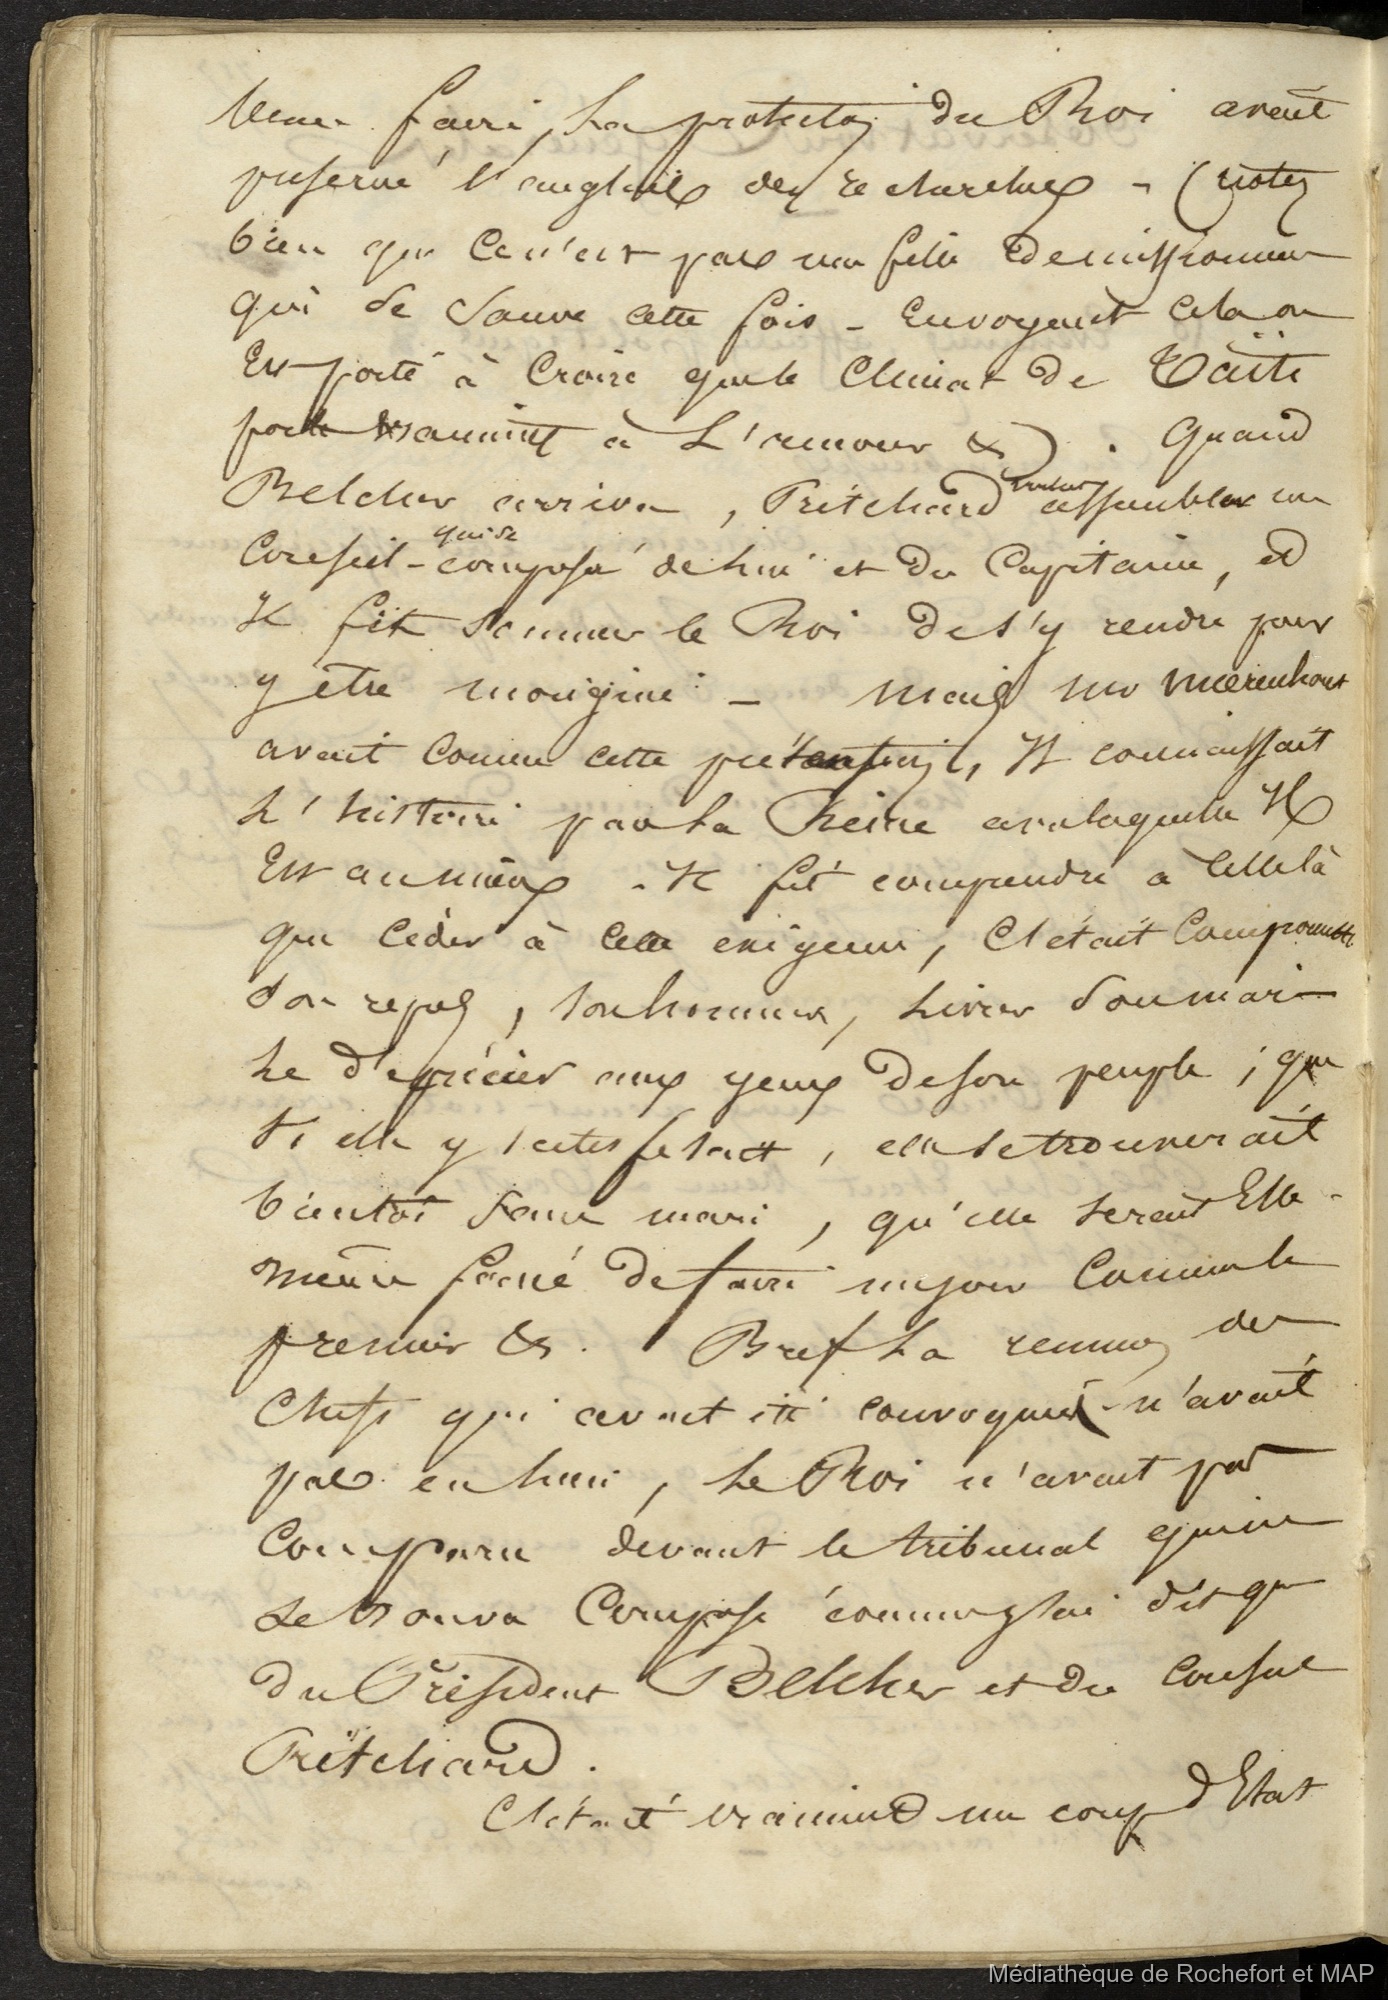 faire, La protection du Roi avait
préservé l'anglais des recherches - (notez
bien que ce n'est pas une fille de missionnaire
qui se sauve cette fois - En voyant cela on
Est porté à croire que le Climat de Taïti
porte vraiment à L'amour &) . Quand
Belcher arriva, Pritchard voulut assembler un
Conseil - qui se composa de lui et du Capitaine, et
Il fit sommer le Roi de s'y rendre pour
y être morigéné - mais mr mœrenhout
avait connu cette prétention, Il connaissait
L'histoire par La Reine avec laquelle Il
Est au mieux . Il fit comprendre à Celle là
que Céder à cette exigence, C'était Compromettre
Son repos, son honneur, Livrer Son mari
Le déprécier aux yeux de son peuple ; que
Si elle y satisfesait, elle se trouverait
bientôt sans mari, qu'elle serait Elle
même forcé de faire un jour Comme le
premier &. Bref La reunion des
Chefs qui avait été convoqués n'avait
pas eu lieu, Le Roi n'avait pas
Comparu devant le tribunal qui ne
se trouva Composé comme je l'ai dit que
du Président Belcher et du Consul
Pritchard.
C'était vraiment un coup d'Etat
Médiathèque de Rochefort et MAP